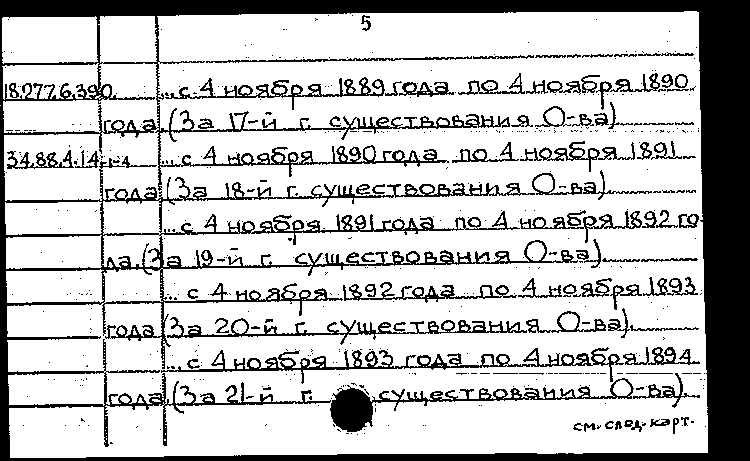 5
18.277.6.390. ...с 4 ноября 1889 года по 4 ноября 1890
года. (За 17-й г. существования О-ва)
34.88.4.14-1-4 ...с 4 ноября 1890 года по 4 ноября 1891
года (За 18-й г. существования О-ва).
...с 4 ноября 1891 года по 4 ноября 1892 го-
да. (За 19-й г. существования О-ва).
... с 4 ноября 1892 года по 4 ноября 1893
года (За 20-й г. существования О-ва).
... с 4 ноября 1893 года по 4 ноября 1894
года. (За 21-й г. существования О-ва).
см. след. карт.